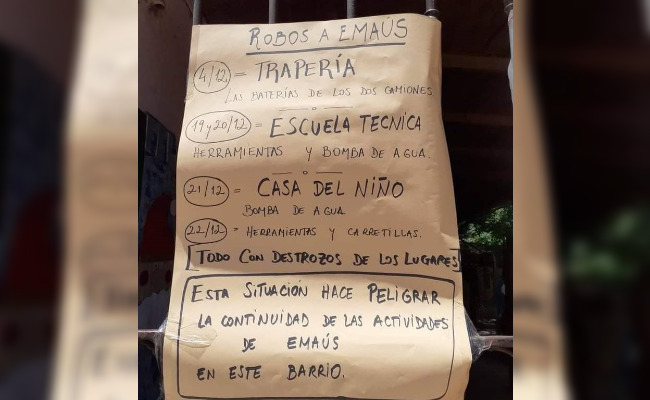 ROBOS A EMAÚS
4/12 = TRAPERÍA
LAS BATERÍAS DE LOS DOS CAMIONES
19 y 20/12 = ESCUELA TECNICA
HERRAMIENTAS Y BOMBA DE AGUA.
21/12 = CASA DEL NIÑO
BOMBA DE AGUA
22/12 = HERRAMIENTAS Y CARRETILLAS.
[TODO CON DESTROZOS DE LOS LUGARES]
ESTA SITUACIÓN HACE PELIGRAR
LA CONTINUIDAD DE LAS ACTIVIDADES
DE EMAÚS
EN ESTE BARRIO.